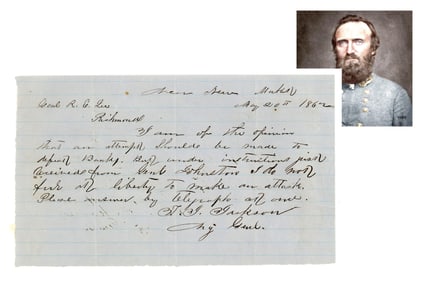 Near New Market
Genl R. E. Lee May 20th 1862
Richmond
I am of the opinion
that an attempt should be made to
defeat Banks. But under instructions just
received from Genl Johnston I do not
feel at liberty to make an attack.
Please answer by telegraph at once.
T. J. Jackson
Maj Genl.